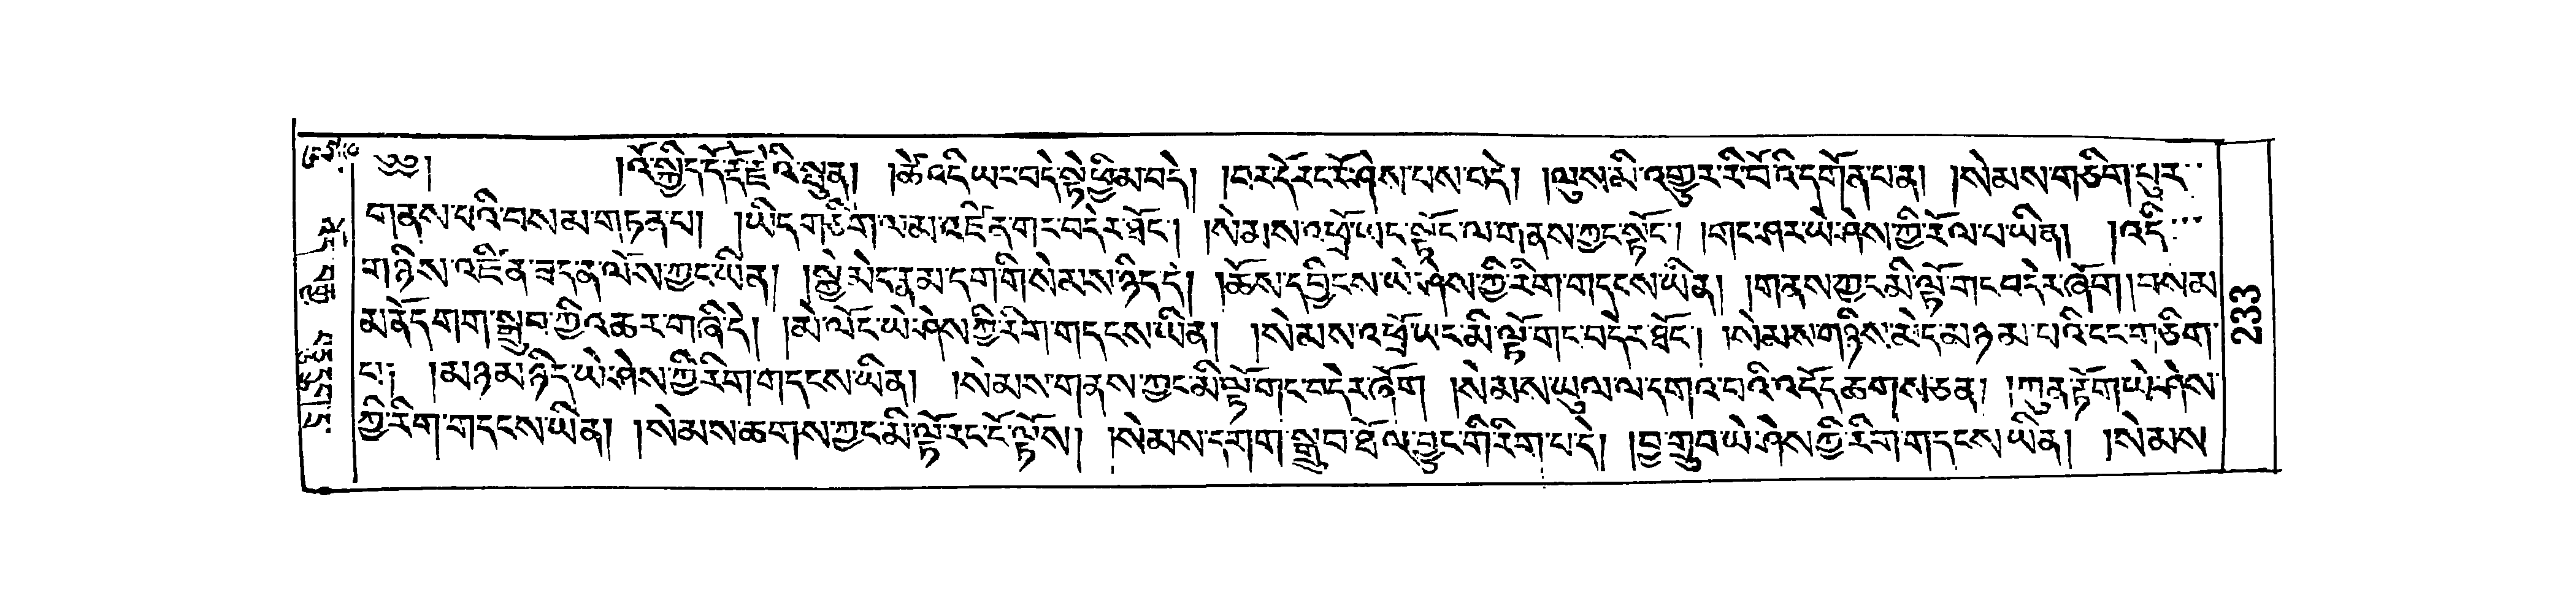 ༄༅། །འོ་སྐྱིད་དོ་རྡོ་རྗེའི་སྤུན། །ཚེ་འདི་ཡང་བདེ་སྟེ་ཕྱི་མ་བདེ། །བར་དོ་རང་ངོ་ཤེས་པས་བདེ། །ལུས་མི་འགྱུར་རི་བོའི་དགོན་པ་ན། །སེམས་གཅིག་པུར་
གནས་པའི་བསམ་གཏན་པ། །ཡིད་གཅིག་ལ་མ་འཛིན་གང་བདེར་ཐོང་། །སེམས་འཕྲོ་ཡང་སྟོང་ལ་གནས་ཀྱང་སྟོང་། །གང་ཤར་ཡེ་ཤེས་ཀྱི་རོལ་པ་ཡིན། །འདི་
གཉིས་འཛིན་ཟད་ན་ལོས་ཀྱང་ཡིན། །སྐྱེ་མེད་རྣམ་དག་གི་སེམས་ཉིད་དེ། །ཆོས་དབྱིངས་ཡེ་ཤེས་ཀྱི་རིག་གདངས་ཡིན། །གནས་ཀྱང་མི་ལྟོ་གང་བདེར་ཞོག །བསམ་
མནོ་དགག་སྒྲུབ་ཀྱི་འཆར་གཞི་དེ། །མེ་ལོང་ཡེ་ཤེས་ཀྱི་རིག་གདངས་ཡིན། །སེམས་འཕྲོ་ཡང་མི་ལྟོ་གང་བདེར་ཐོང་། །སེམས་གཉིས་མེད་མཉམ་པའི་ངང་གཅིག་
ད། །མཉམ་ཉིད་ཡེ་ཤེས་ཀྱི་རིག་གདངས་ཡིན། །སེམས་གནས་ཀྱང་མི་ལྟོ་གང་བདེར་ཞོག །སེམས་ཡུལ་ལ་དགའ་བའི་འདོད་ཆགས་ཅན། །ཀུན་རྟོག་ཡེ་ཤེས་
ཀྱི་རིག་གདངས་ཡིན། །སེམས་ཆགས་ཀྱང་མི་ལྟོ་རང་ངོ་ལྟོས། །སེམས་དགག་སྒྲུབ་ཐོལ་བྱུང་གི་རིག་པ་དེ། །བྱ་གྲུབ་ཡེ་ཤེས་ཀྱི་རིག་གདངས་ཡིན། །སེམས་